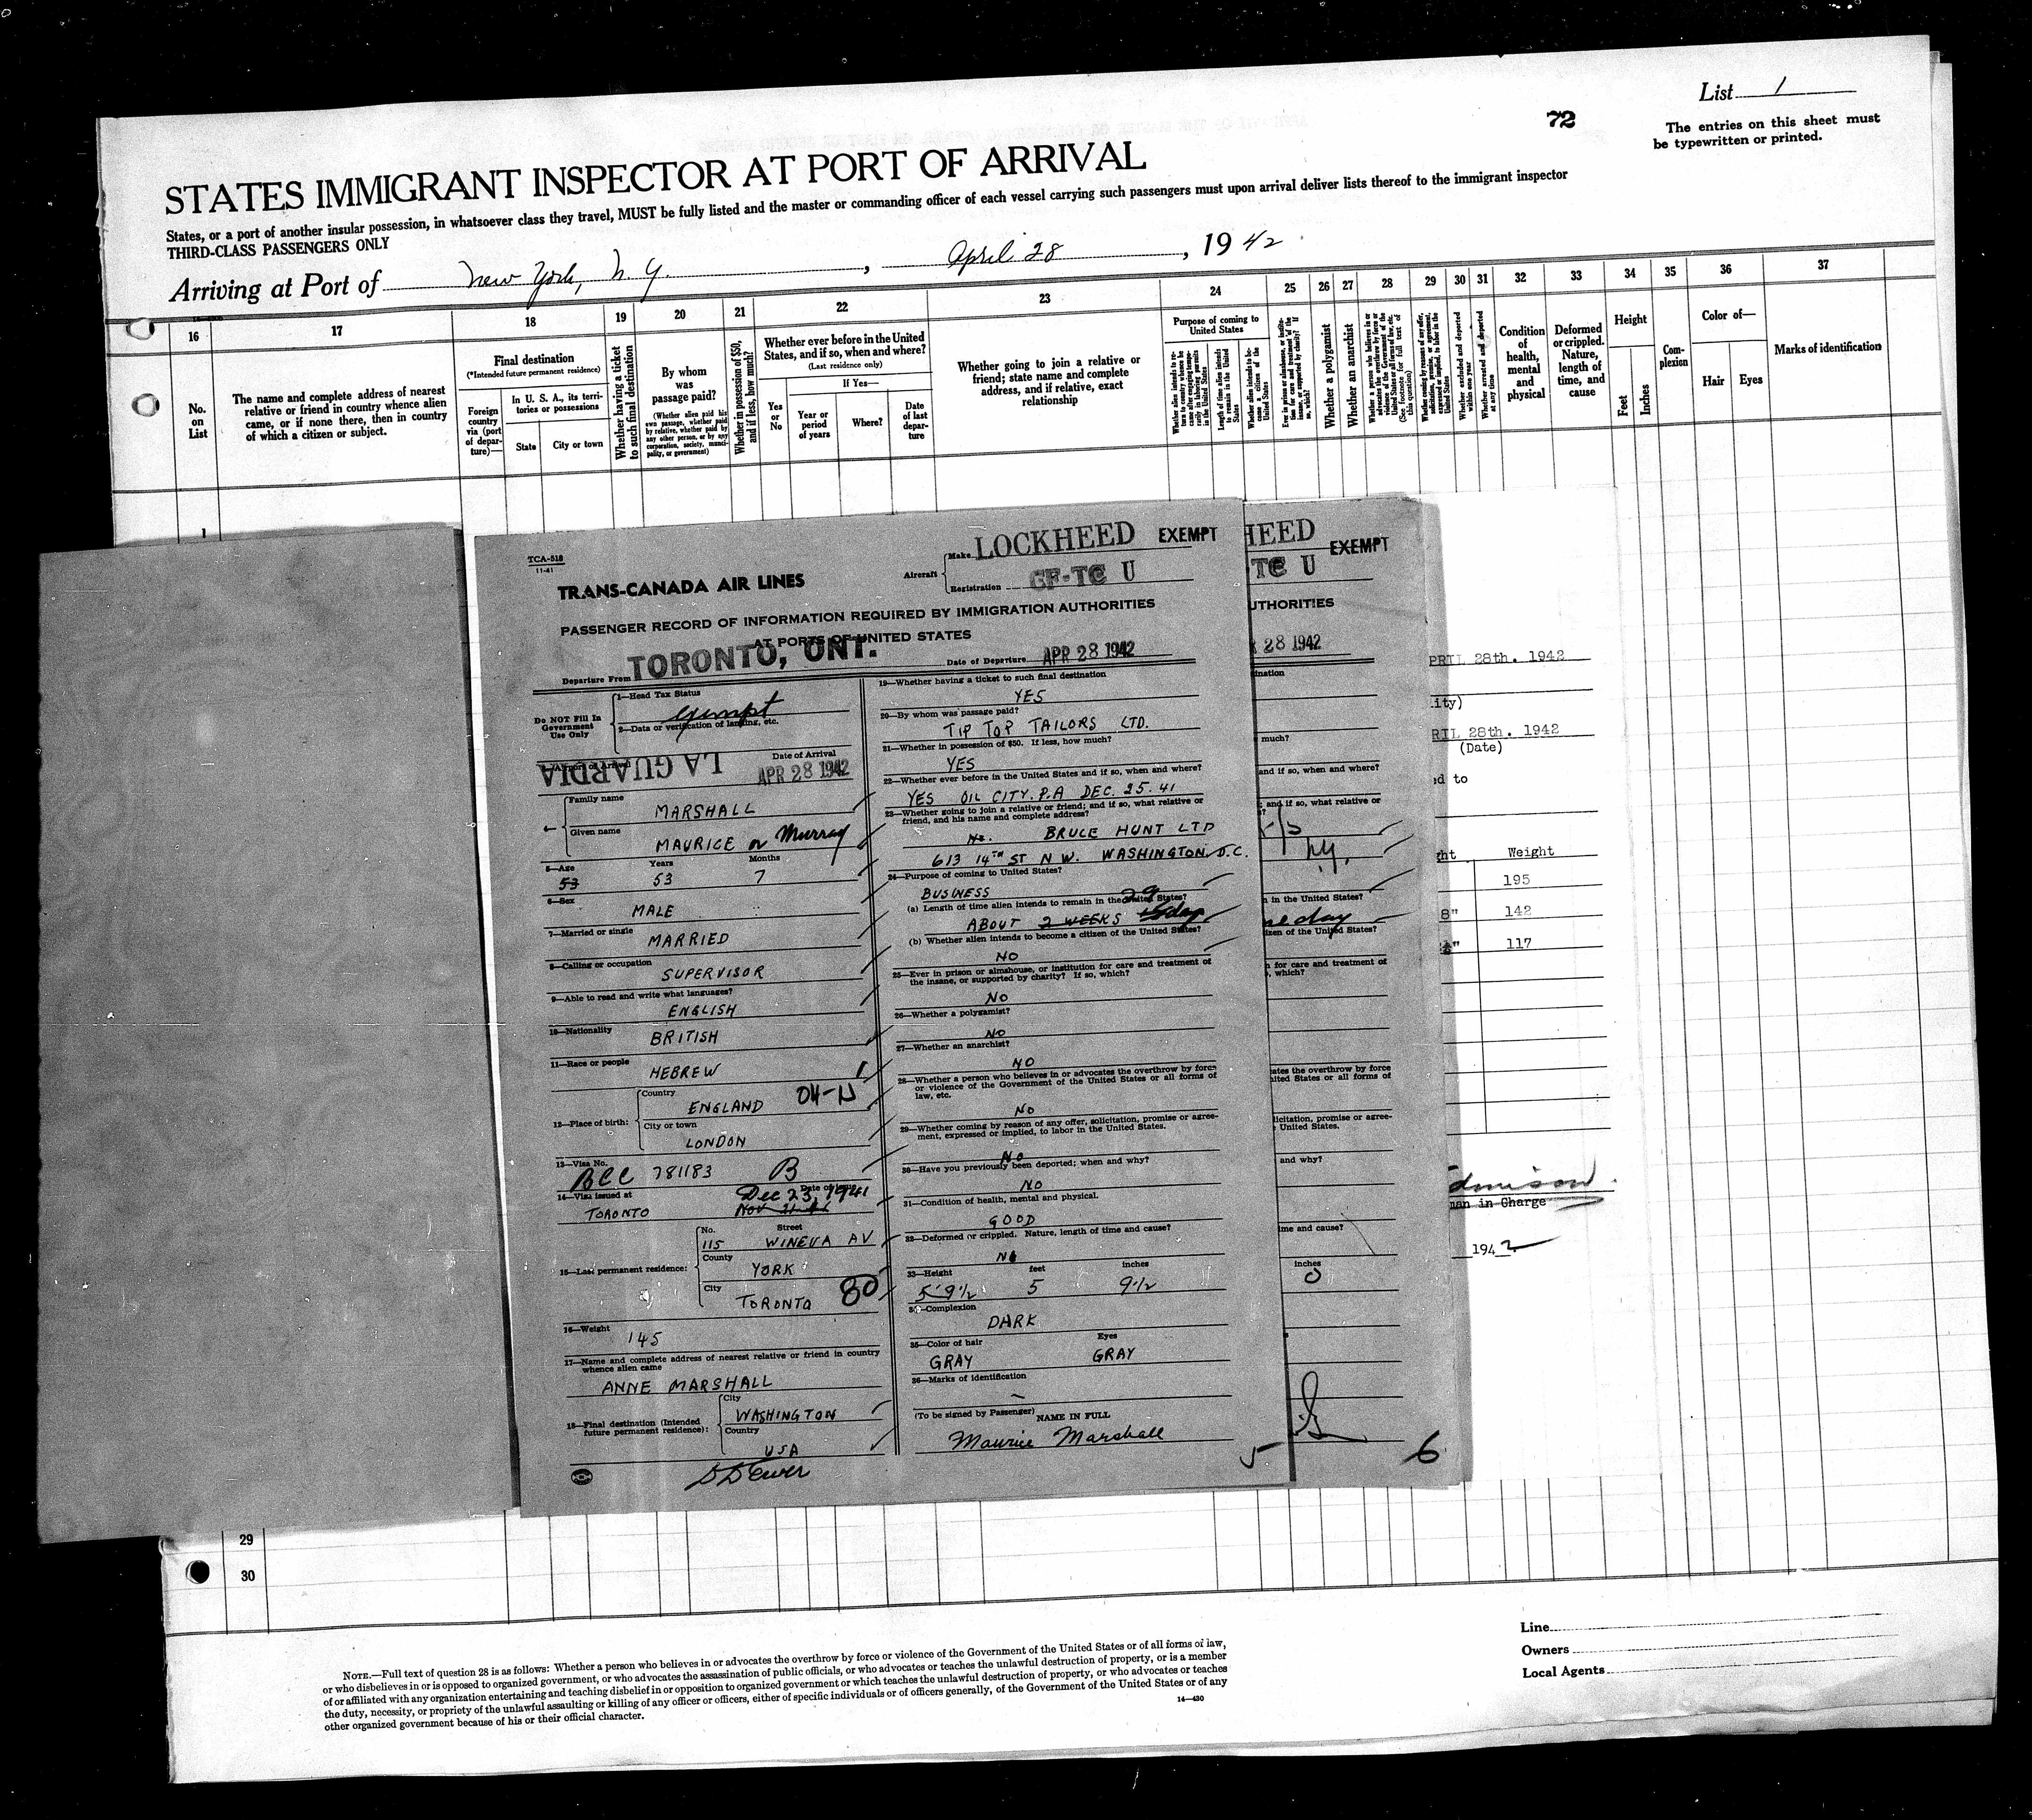 List 1
72
The entries on this sheet must
be typewritten or printed.
STATES IMMIGRANT INSPECTOR AT PORT OF ARRIVAL
States, or a port of another insular possession, in whatsoever class they travel, MUST be fully listed and the master or commanding officer of each vessel carrying such passengers must upon arrival deliver lists thereof to the immigrant inspector
THIRD-CLASS PASSENGERS ONLY
Arriving at Port of New York, N. Y. , April 28 , 1942
16 17 18 19 20 21 22 23 24 25 26 27 28 29 30 31 32 33 34 35 36 37
No.
on
List
The name and complete address of nearest
relative or friend in country whence alien
came, or if none there, then in country
of which a citizen or subject.
Final destination
(*Intended future permanent residence)
Foreign
country
via (port
of depar-
ture)—
In U. S. A., its terri-
tories or possessions
State
City or town
Whether having a ticket
to such final destination
By whom
was
passage paid?
(Whether alien paid his
own passage, whether paid
by relative, whether paid by
any other person, or by any
corporation, society, munici-
pality, or government)
Whether in possession of $50,
and if less, how much?
Whether ever before in the United
States, and if so, when and where?
(Last residence only)
If Yes—
Yes
or
No
Year or
period
of years
Where?
Date
of last
depar-
ture
Whether going to join a relative or
friend; state name and complete
address, and if relative, exact
relationship
Purpose of coming to
United States
Length of time alien intends
to remain in the United
States
Whether alien intends to be-
come a citizen of the
United States
Whether a polygamist
Whether an anarchist
Whether excluded and deported
within one year
Whether arrested and deported
at any time
Condition
of
health,
mental
and
physical
Deformed
or crippled.
Nature,
length of
time, and
cause
Height
Feet
Inches
Com-
plexion
Color of—
Hair
Eyes
Marks of identification
1
TCA-518
11-41
TRANS-CANADA AIR LINES
Aircraft
Make LOCKHEED EXEMPT
Registration CF-TC U
PASSENGER RECORD OF INFORMATION REQUIRED BY IMMIGRATION AUTHORITIES
AT PORTS OF UNITED STATES
Departure From TORONTO, ONT.
Date of Departure APR 28 1942
Do NOT Fill In
Government
Use Only
1—Head Tax Status
exempt
2—Data or verification of landing, etc.
LA GUARDIA
Date of Arrival
APR 28 1942
4—
Family name
MARSHALL
Given name
MAURICE or Murray
5—Age Years Months
53 53 7
6—Sex
MALE
7—Married or single
MARRIED
8—Calling or occupation
SUPERVISOR
9—Able to read and write what languages?
ENGLISH
10—Nationality
BRITISH
11—Race or people
HEBREW
12—Place of birth:
Country
ENGLAND
City or town
LONDON
13—Visa No.
BCC 781183 B
14—Visa issued at Date of issue
TORONTO Dec 23, 1941
15—Last permanent residence:
No. Street
115 WINEVA AV
County
YORK
City
TORONTO 80
16—Weight
145
17—Name and complete address of nearest relative or friend in country
whence alien came
ANNE MARSHALL
18—Final destination (Intended
future permanent residence):
City
WASHINGTON
Country
USA
19—Whether having a ticket to such final destination
YES
20—By whom was passage paid?
TIP TOP TAILORS LTD.
21—Whether in possession of $50. If less, how much?
YES
22—Whether ever before in the United States and if so, when and where?
YES OIL CITY. P.A DEC. 25. 41
23—Whether going to join a relative or friend; and if so, what relative or
friend, and his name and complete address?
No. BRUCE HUNT LTD
613 14TH ST N W. WASHINGTON, D.C.
24—Purpose of coming to United States?
BUSINESS
(a) Length of time alien intends to remain in the United States?
ABOUT 2 WEEKS 29 days
(b) Whether alien intends to become a citizen of the United States?
NO
25—Ever in prison or almshouse, or institution for care and treatment of
the insane, or supported by charity? If so, which?
NO
26—Whether a polygamist?
NO
27—Whether an anarchist?
NO
28—Whether a person who believes in or advocates the overthrow by force
or violence of the Government of the United States or all forms of
law, etc.
NO
29—Whether coming by reason of any offer, solicitation, promise or agree-
ment, expressed or implied, to labor in the United States.
NO
30—Have you previously been deported; when and why?
NO
31—Condition of health, mental and physical.
GOOD
32—Deformed or crippled. Nature, length of time and cause?
NO
33—Height feet inches
5' 9½ 5 9½
34—Complexion
DARK
35—Color of hair Eyes
GRAY GRAY
36—Marks of identification
(To be signed by Passenger) NAME IN FULL
Maurice Marshall
5
HEED EXEMPT
TC U
UTHORITIES
28 1942
ination
much?
and if so, when and where?
; and if so, what relative or
n in the United States?
izen of the United States?
n for care and treatment of
, which?
ates the overthrow by force
ited States or all forms of
licitation, promise or agree-
United States.
and why?
me and cause?
inches
0
6
PRIL 28th. 1942
ity)
RIL 28th. 1942
(Date)
ed to
ght Weight
195
8" 142
117
man in Charge
1942
29
30
NOTE.—Full text of question 28 is as follows: Whether a person who believes in or advocates the overthrow by force or violence of the Government of the United States or of all forms of law,
or who disbelieves in or is opposed to organized government, or who advocates the assassination of public officials, or who advocates or teaches the unlawful destruction of property, or is a member
of or affiliated with any organization entertaining and teaching disbelief in or opposition to organized government or which teaches the unlawful destruction of property, or who advocates or teaches
the duty, necessity, or propriety of the unlawful assaulting or killing of any officer or officers, either of specific individuals or of officers generally, of the Government of the United States or of any
other organized government because of his or their official character.
14—430
Line
Owners
Local Agents